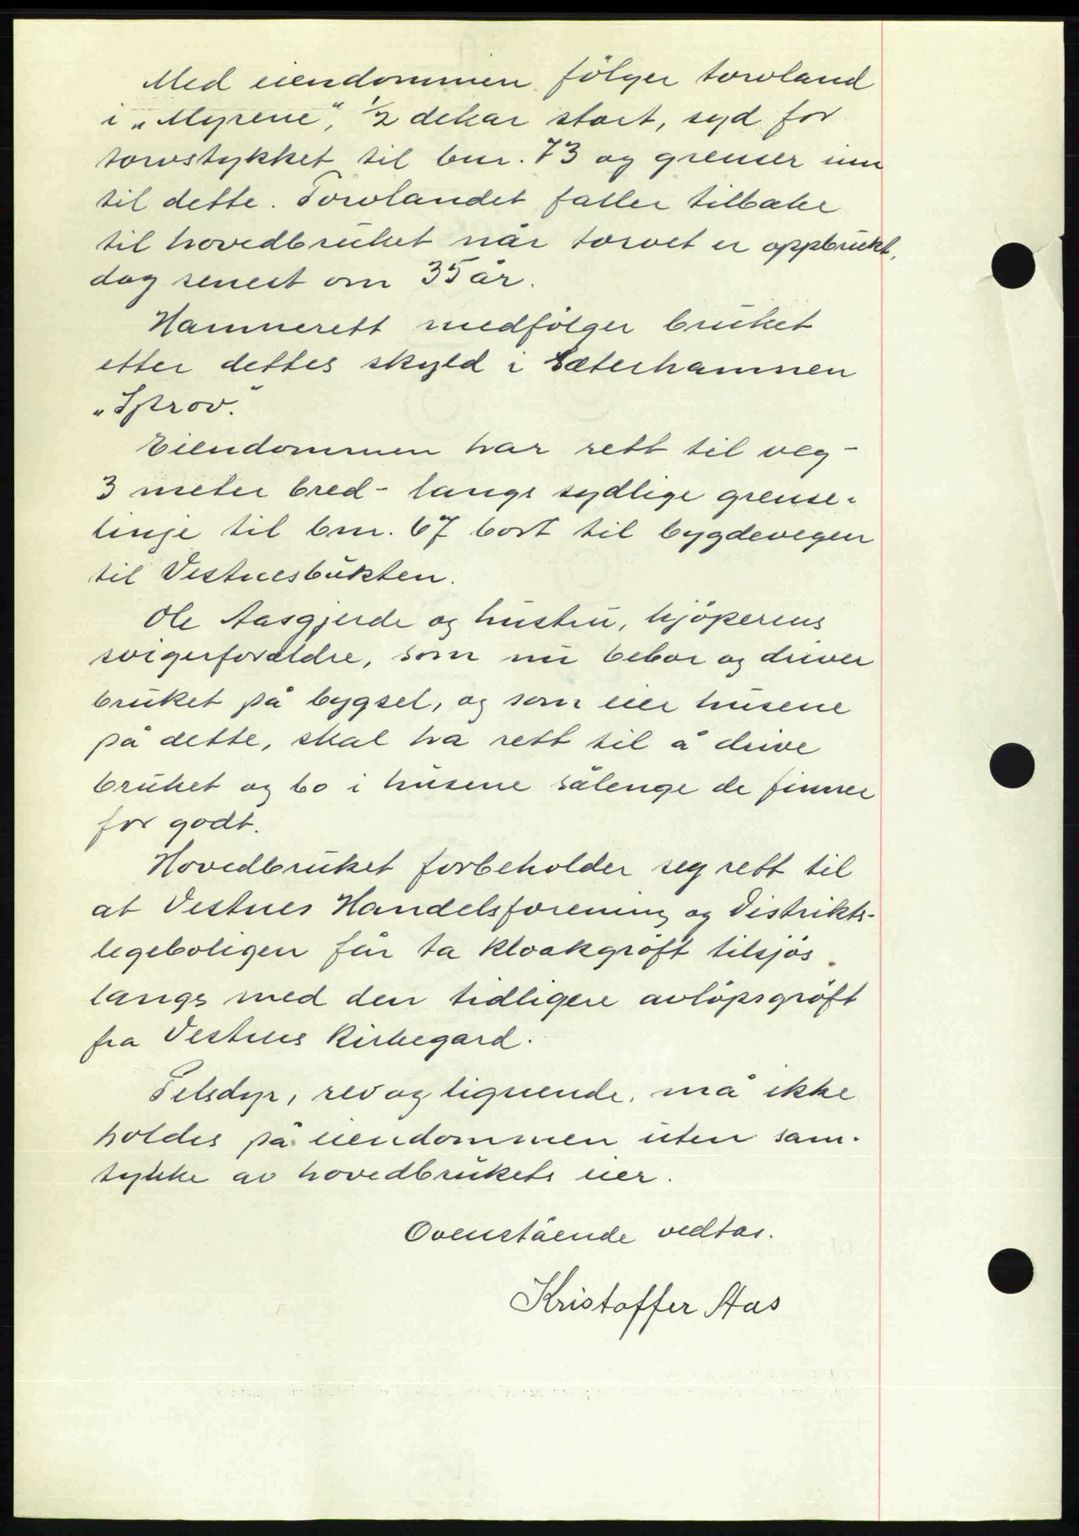 Med eiendommen følger torvland
i „Myrene“, 1/2 dekar stort, syd for
torvstykket til bnr. 73 og grenser inn
til dette. Torvlandet faller tilbake
til hovedbruket når torvet er oppbrukt,
dog senest om 35 år.
Hamnerett medfølger bruket
etter dettes skyld i Sæterhamnen
„Sprov.“
Eiendommen har rett til veg -
3 meter bred - langs sydlige grense-
linje til bnr. 67 bort til bygdevegen
til Vestnesbukten.
Ole Aasgjerde og hustru, kjøperens
svigerforeldre, som nu bebor og driver
bruket på bygsel, og som eier husene
på dette, skal ha rett til å drive
bruket og bo i husene sålenge de finner
for godt.
Hovedbruket forbeholder seg rett til
at Vestnes Handelsforening og Distrikts-
legeboligen får ta kloakgrøft tilsjøs
langs med den tidligere avløpsgrøft
fra Vestnes Kirkegard.
Pelsdyr, rev og lignende, må ikke
holdes på eiendommen uten sam-
tykke av hovedbrukets eier.
Ovenstående vedtas.
Kristoffer Aas